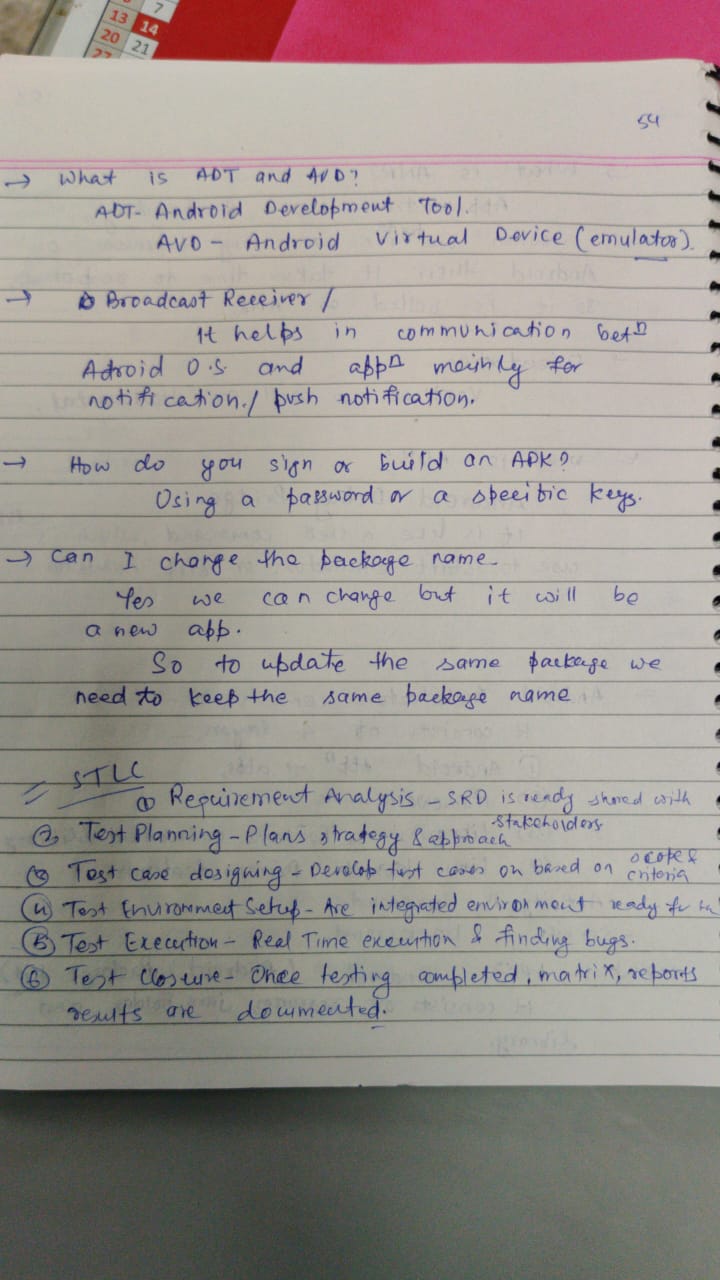 7
13 14
20 21
27
54
→ What is ADT and AVD?
ADT- Android Development Tool.
AVD - Android Virtual Device (emulator).
→ Broadcast Receiver /
It helps in communication betⁿ
Adroid O.S. and appⁿ mainly for
notification./ push notification.
→ How do you sign or build an APK?
Using a password or a specific keys.
→ Can I change the package name.
Yes we can change but it will be
a new app.
So to update the same package we
need to keep the same package name
STLC
① Requirement Analysis - SRD is ready shared with
stakeholders
② Test Planning - Plans strategy & approach
③ Test case designing - Develop test cases on based on scope &
criteria
④ Test Environmect Setup - Are integrated environment ready for
⑤ Test Execution - Real Time execution & finding bugs.
⑥ Test Closure - Once testing completed, matrix, reports
results are documented.